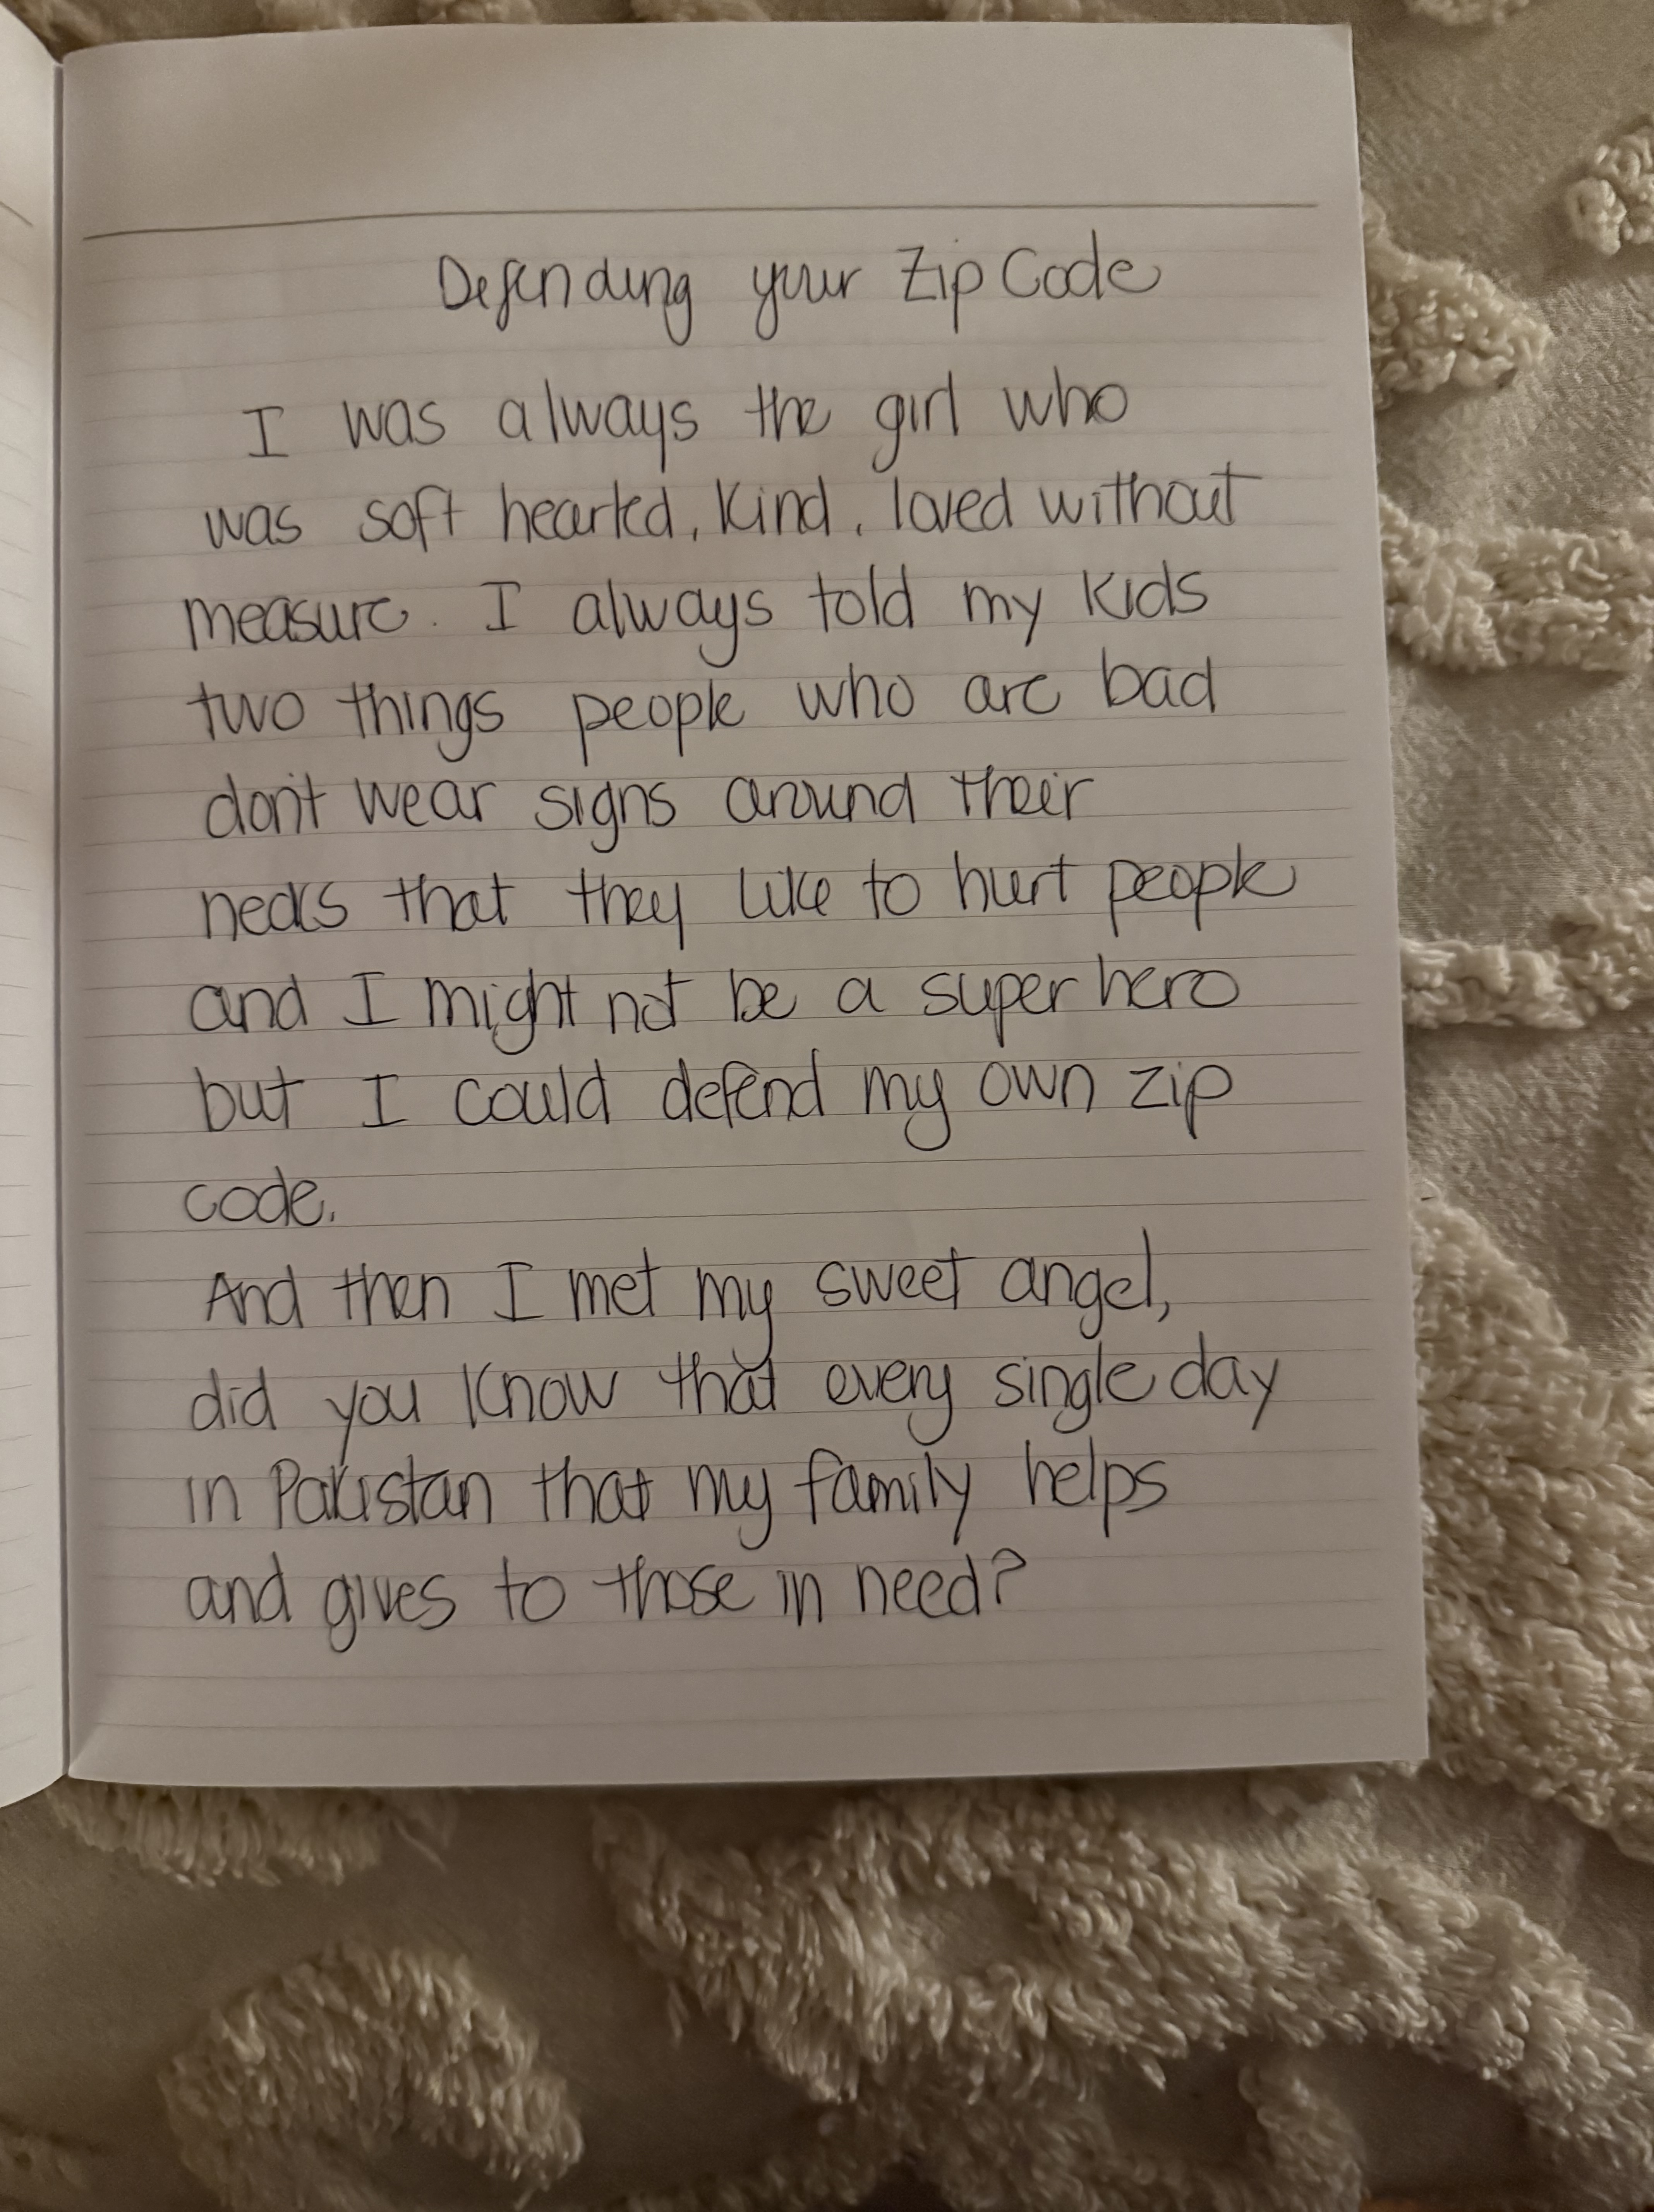 Defending your Zip Code
I was always the girl who
was soft hearted, kind, loved without
measure. I always told my kids
two things people who are bad
don't wear signs around their
necks that they like to hurt people
and I might not be a super hero
but I could defend my own zip
code.
And then I met my sweet angel,
did you know that every single day
in Pakistan that my family helps
and gives to those in need?